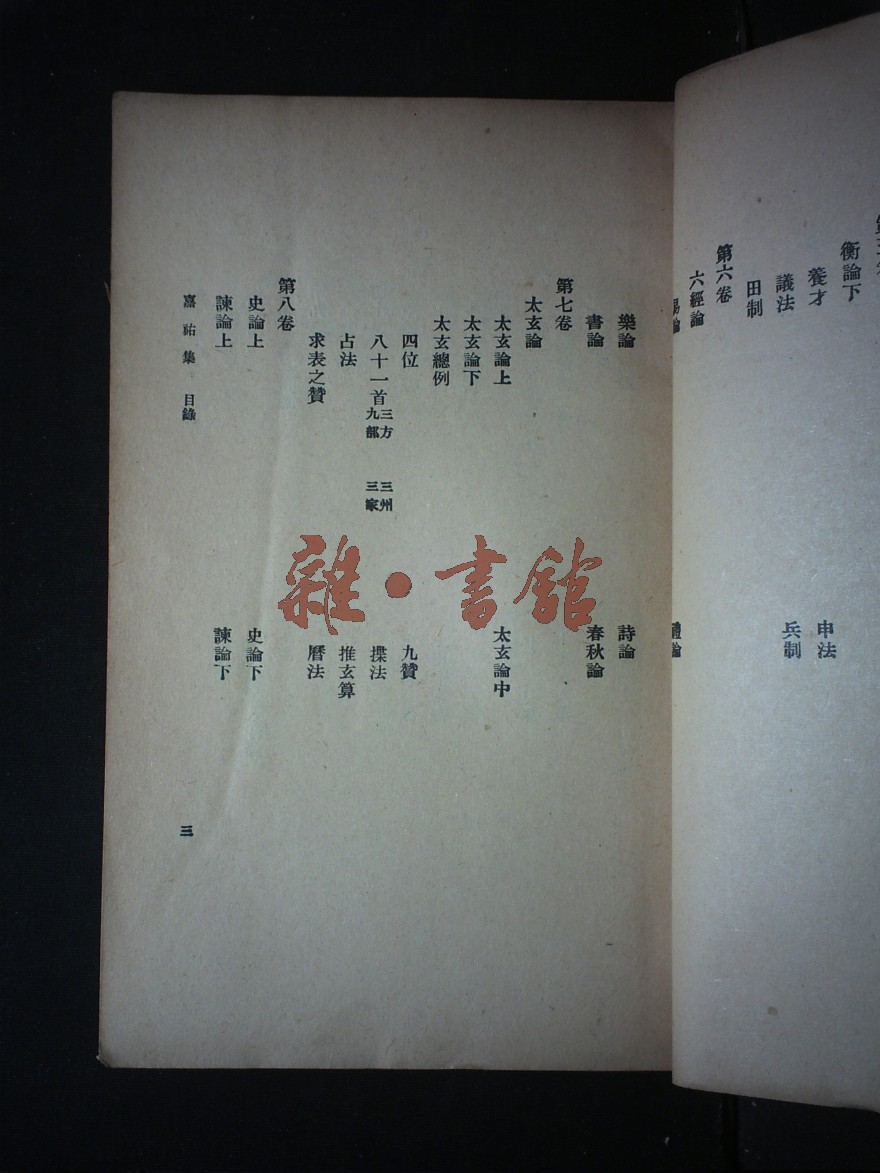 衡論下
養才 申法
議法 兵制
田制
第六卷
六經論
易論 禮論
樂論 詩論
書論 春秋論
第七卷
太玄論
太玄論上 太玄論中
太玄論下
太玄總例
四位 九贊
八十一首 三方 三州 九部 三家 揲法
占法 推玄算
求表之贊 曆法
第八卷
史論上 史論下
諫論上 諫論下
嘉祐集 目錄 三
雜·書館